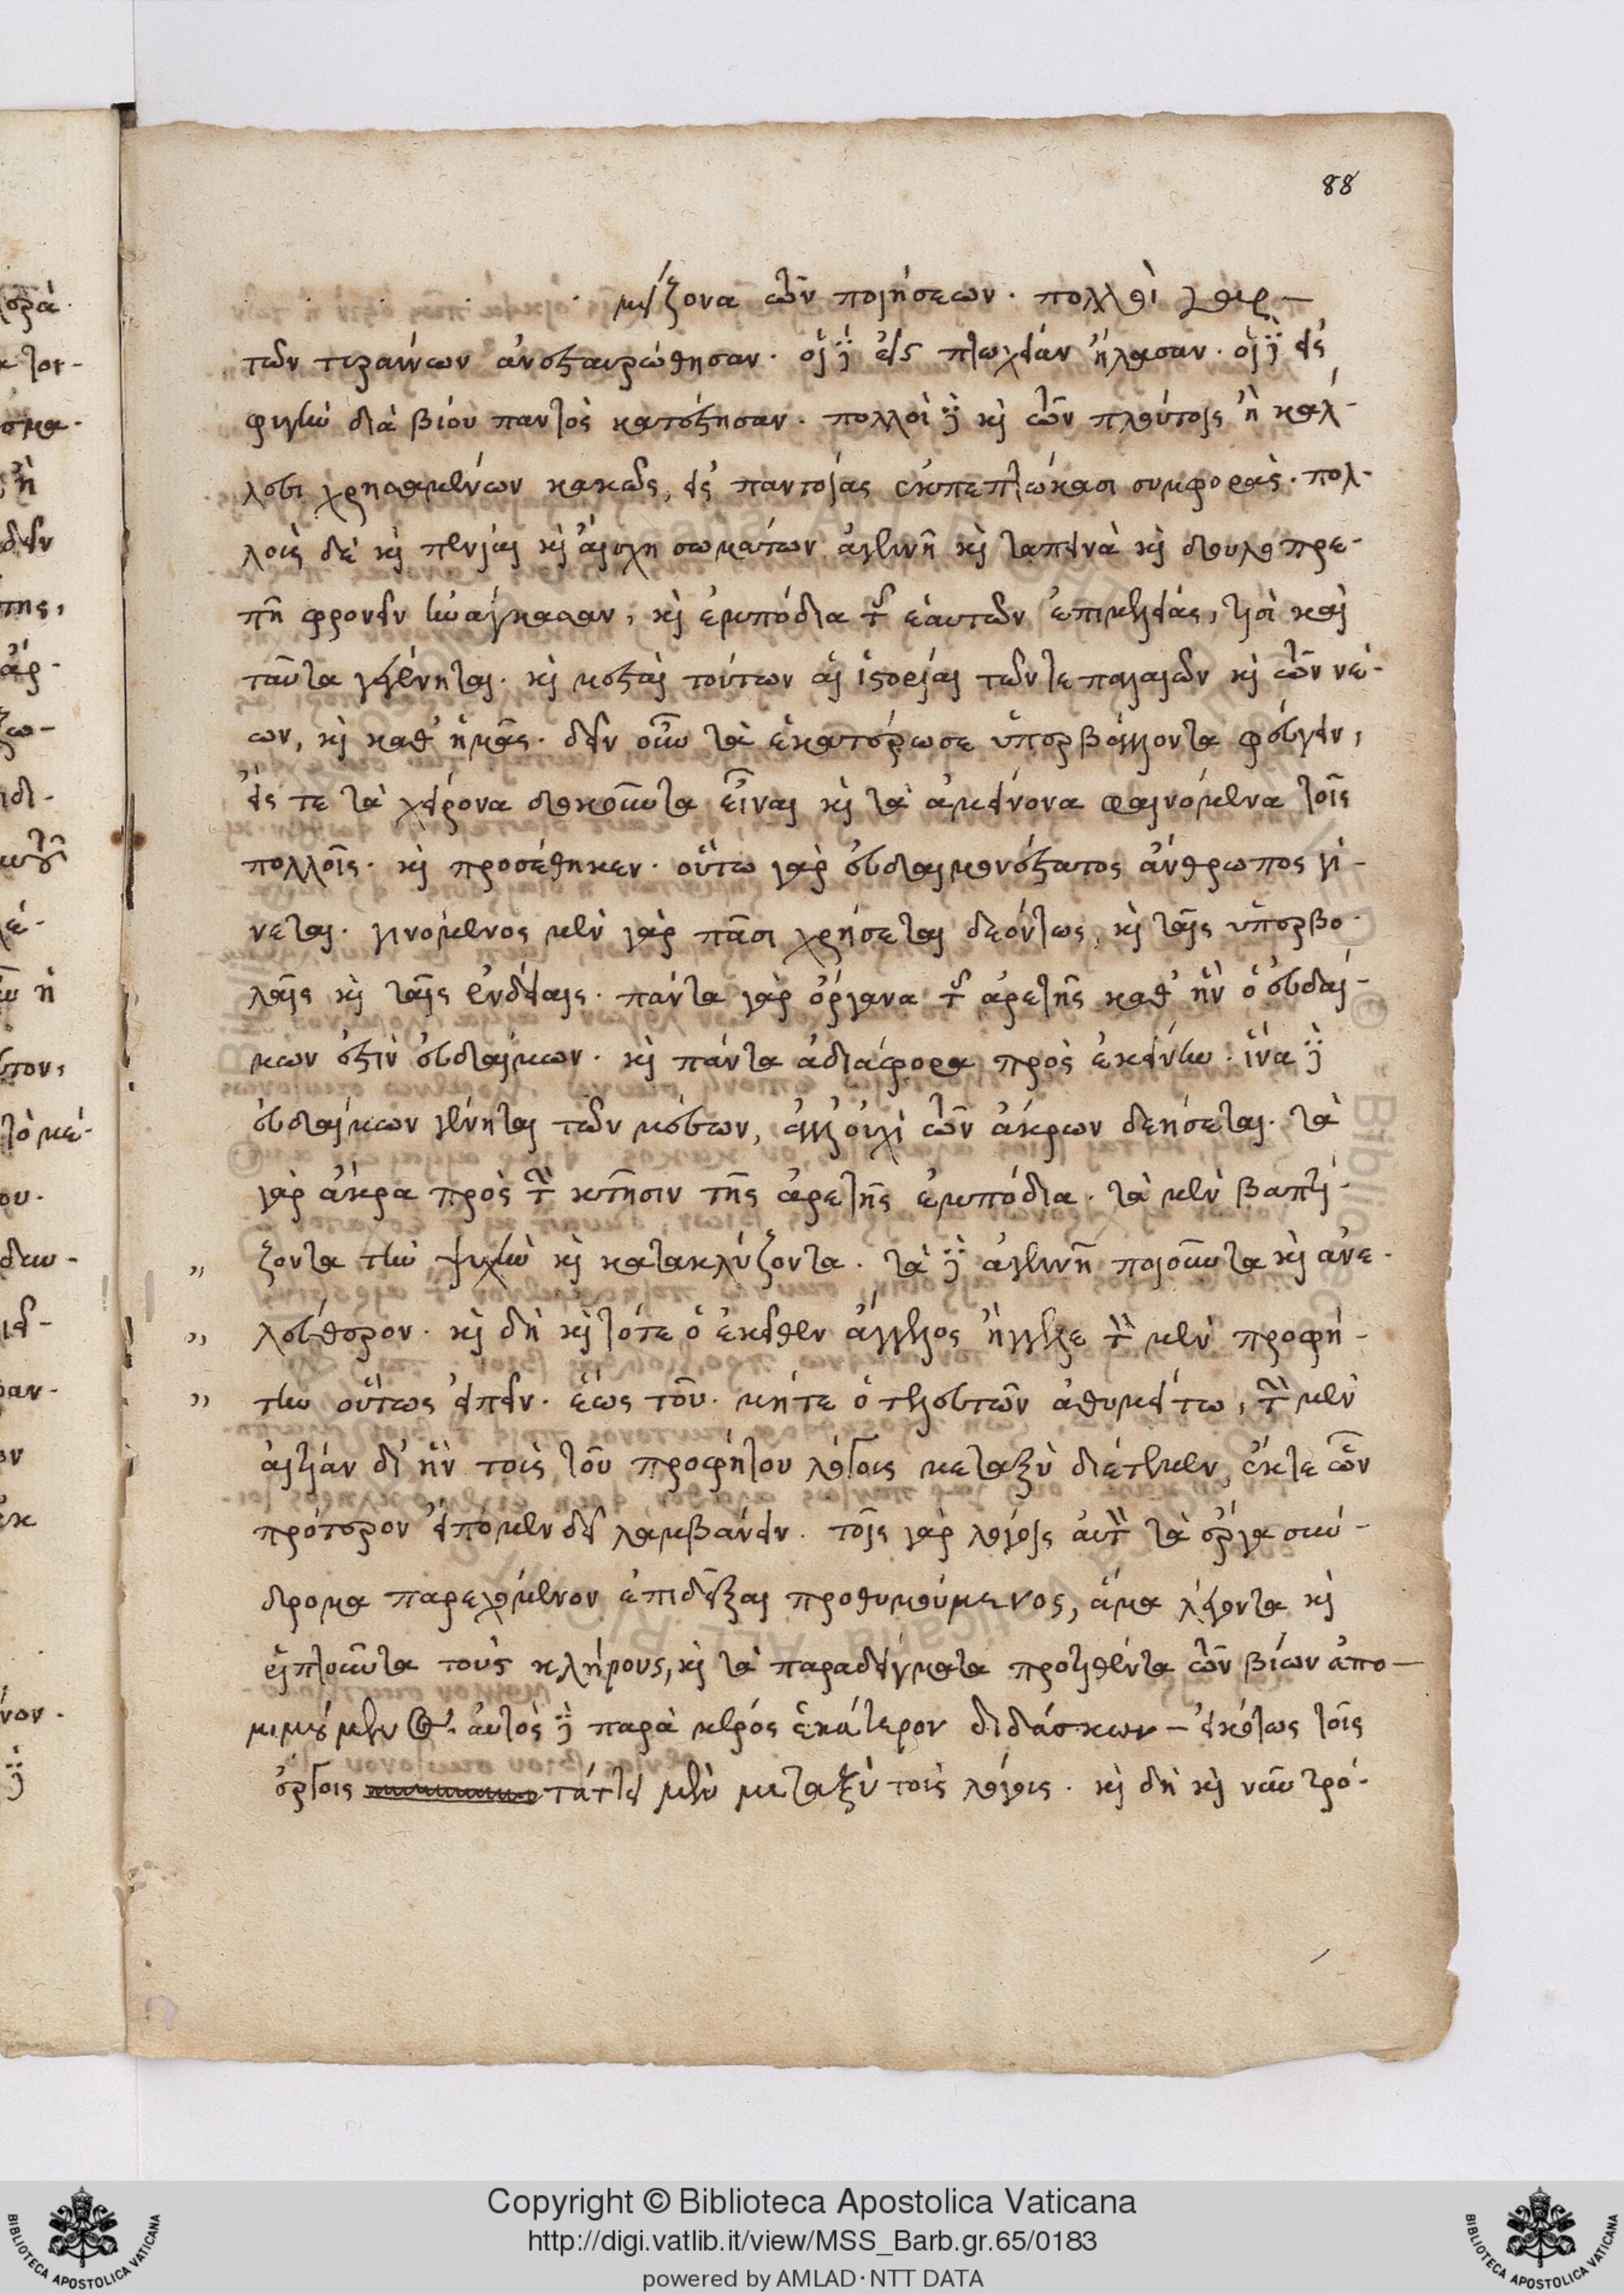 88
μείζονα τῶν ποιήσεων. πολλοὶ γὰρ
τῶν τυράννων ἀνεσταυρώθησαν. οἱ δὲ εἰς πτωχείαν ἤλασαν. οἱ δὲ ἐν
φυγῇ διὰ βίου παντὸς κατέστησαν. πολλοὶ δὲ καὶ τῶν πλούτοις ἢ κάλ-
λεσι χρησαμένων κακῶς, εἰς παντοίας ἐκπεπτώκασι συμφοράς. πολ-
λοὺς δὲ καὶ πενίαι καὶ αἴσχη σωμάτων ἀγεννῆ καὶ ταπεινὰ καὶ δουλοπρε-
πῆ φρονεῖν ἠνάγκασαν, καὶ ἐμπόδια τῆς ἑαυτῶν ἐπιμελείας, καὶ
ταῦτα γεγένηται. καὶ μεσταὶ τούτων αἱ ἱστορίαι τῶν τε παλαιῶν καὶ τῶν νέ-
ων, καὶ καθ' ἡμᾶς. δεῖν οὖν τὰ ἑκατέρωσε ὑπερβάλλοντα φεύγειν,
εἴς τε τὰ χείρονα δοκοῦντα εἶναι καὶ τὰ ἀμείνονα φαινόμενα τοῖς
πολλοῖς. καὶ προσέθηκεν. οὕτω γὰρ εὐδαιμονέστατος ἄνθρωπος γί-
νεται. γινόμενος μὲν γὰρ πᾶσι χρήσεται δεόντως, καὶ ταῖς ὑπερβο-
λαῖς καὶ ταῖς ἐνδείαις. πάντα γὰρ ὄργανα τῆς ἀρετῆς καθ' ἣν ὁ εὐδαί-
μων ἐστὶν εὐδαίμων. καὶ πάντα ἀδιάφορα πρὸς ἐκείνην. ἵνα δὲ
εὐδαίμων γένηται τῶν μέσων, ἀλλ' οὐχὶ τῶν ἄκρων δεήσεται. τὰ
γὰρ ἄκρα πρὸς τὴν κτῆσιν τῆς ἀρετῆς ἐμπόδια. τὰ μὲν βαπτί-
ζοντα τὴν ψυχὴν καὶ κατακλύζοντα. τὰ δὲ ἀγεννῆ ποιοῦντα καὶ ἀνε-
λεύθερον. καὶ δὴ καὶ τότε ὁ ἐκεῖθεν ἄγγελος ἤγγειλε τὸν μὲν προφή-
την οὕτως εἰπεῖν. ἕως τοῦ. μήτε ὁ τελευτῶν ἀθυμείτω, τὴν μὲν
αἰτίαν δι' ἣν τοῖς τοῦ προφήτου λόγοις μεταξὺ διέτεμεν, ἔκ τε τῶν
πρότερον εἴπομεν δεῖ λαμβάνειν. τοῖς γὰρ λόγοις αὐτὸν τὰ ἔργα σύν-
δρομα παρεχόμενον ἐπιδεῖξαι προθυμούμενος, ἅμα λέγοντα καὶ
ῥιπτοῦντα τοὺς κλήρους, καὶ τὰ παραδείγματα προτιθέντα τῶν βίων ἀπο-
μιμούμενος. αὐτὸς δὲ παρὰ μέρος ἑκάτερον διδάσκων εἰκότως τοῖς
ἔργοις τάττει μὲν μεταξὺ τοῖς λόγοις. καὶ δὴ καὶ νῦν τρό-
Copyright © Biblioteca Apostolica Vaticana
http://digi.vatlib.it/view/MSS_Barb.gr.65/0183
powered by AMLAD·NTT DATA